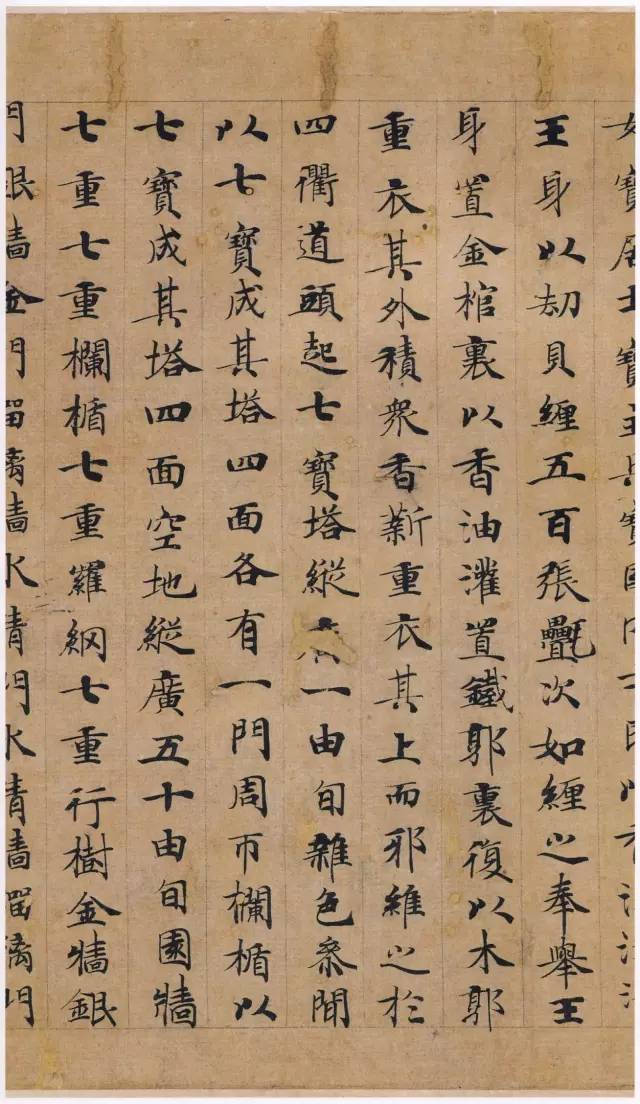 女寶居士寶主兵寶國內士民以香湯
王身以劫貝纏五百張氎次如纏之奉舉王
身置金棺裏以香油灌置鐵郭裏復以木郭
重衣其外積衆香薪重衣其上而邪維之於
四衢道頭起七寶塔縱一由旬雜色叅間
以七寶成其塔四面各有一門周帀欄楯以
七寶成其塔四面空地縱廣五十由旬園牆
七重七重欄楯七重羅網七重行樹金牆銀
門銀牆金門瑠璃牆水精門水精牆瑠璃門